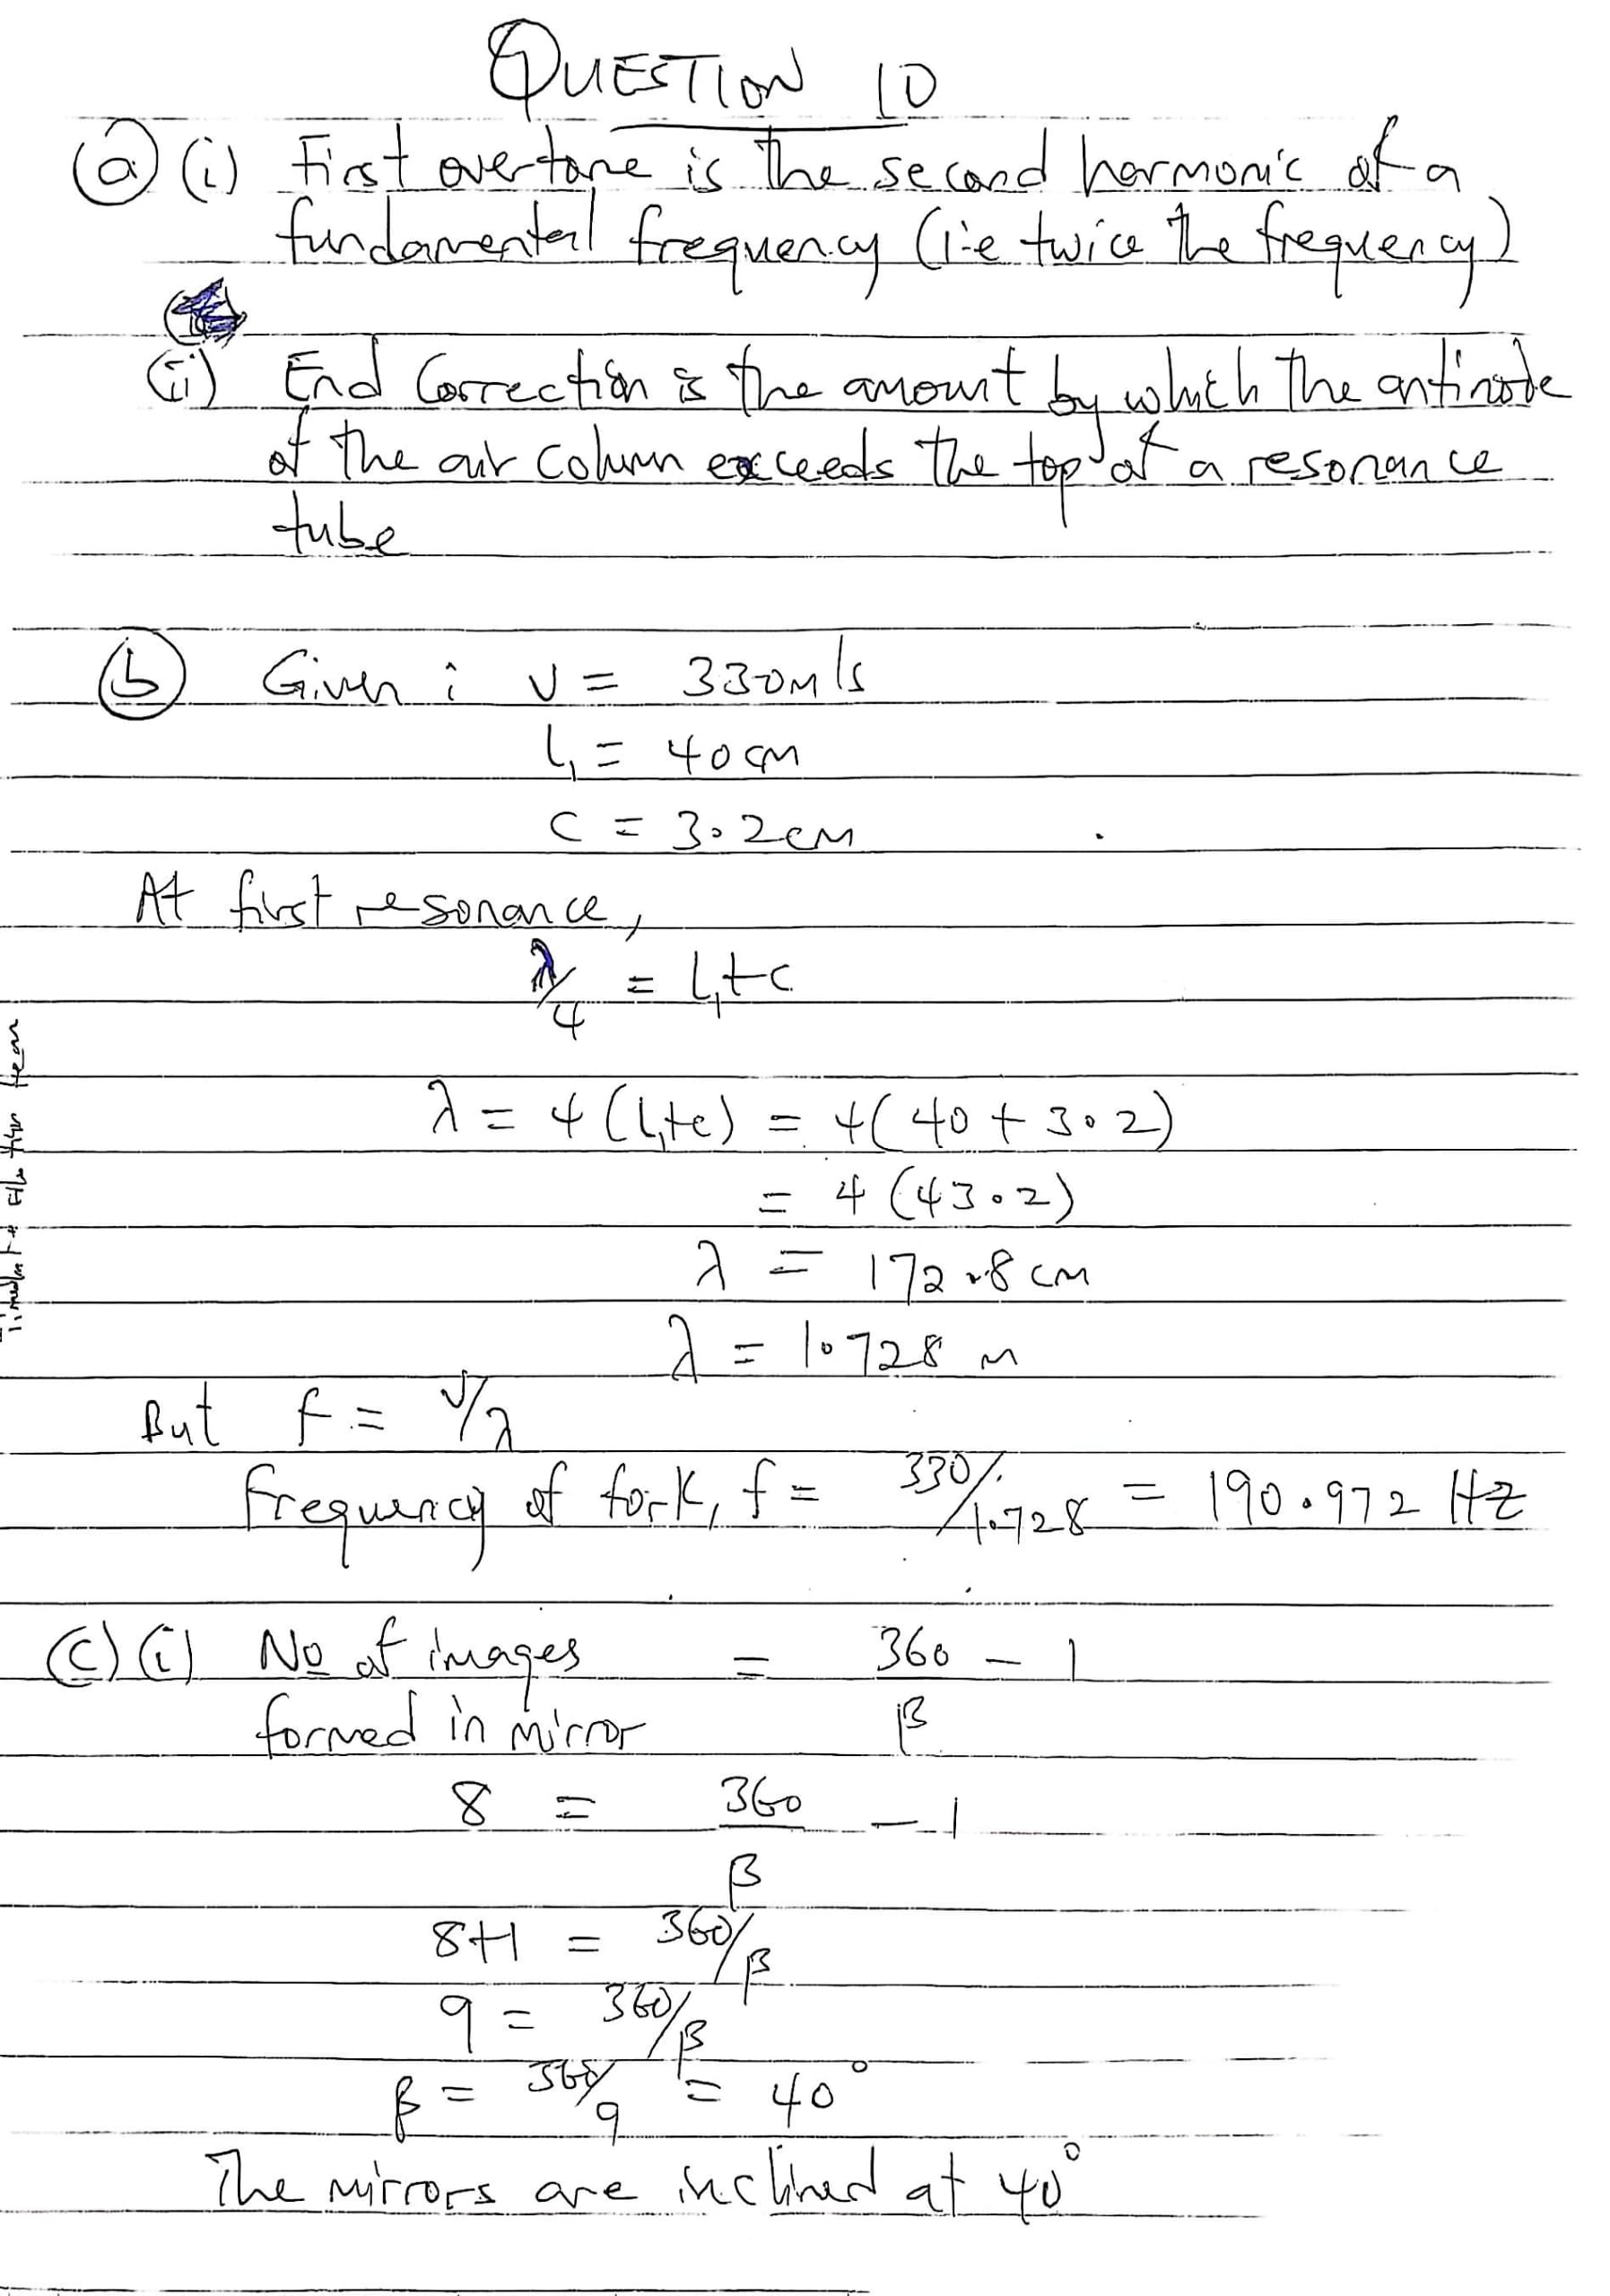 QUESTION 10
(a) (i) First overtone is the second harmonic of a
fundamental frequency (i.e twice the frequency)
(ii) End Correction is the amount by which the antinode
of the air column exceeds the top of a resonance
tube
(b) Given : V = 330m/s
L₁ = 40cm
C = 3.2cm
At first resonance,
λ/4 = L₁+c
λ = 4(L₁+c) = 4(40 + 3.2)
= 4(43.2)
λ = 172.8cm
λ = 1.728 m
But f = V/λ
Frequency of fork, f = 330/1.728 = 190.972 Hz
(c) (i) No of images = 360/β - 1
formed in mirror
8 = 360/β - 1
8+1 = 360/β
9 = 360/β
β = 360/9 = 40°
The mirrors are inclined at 40°